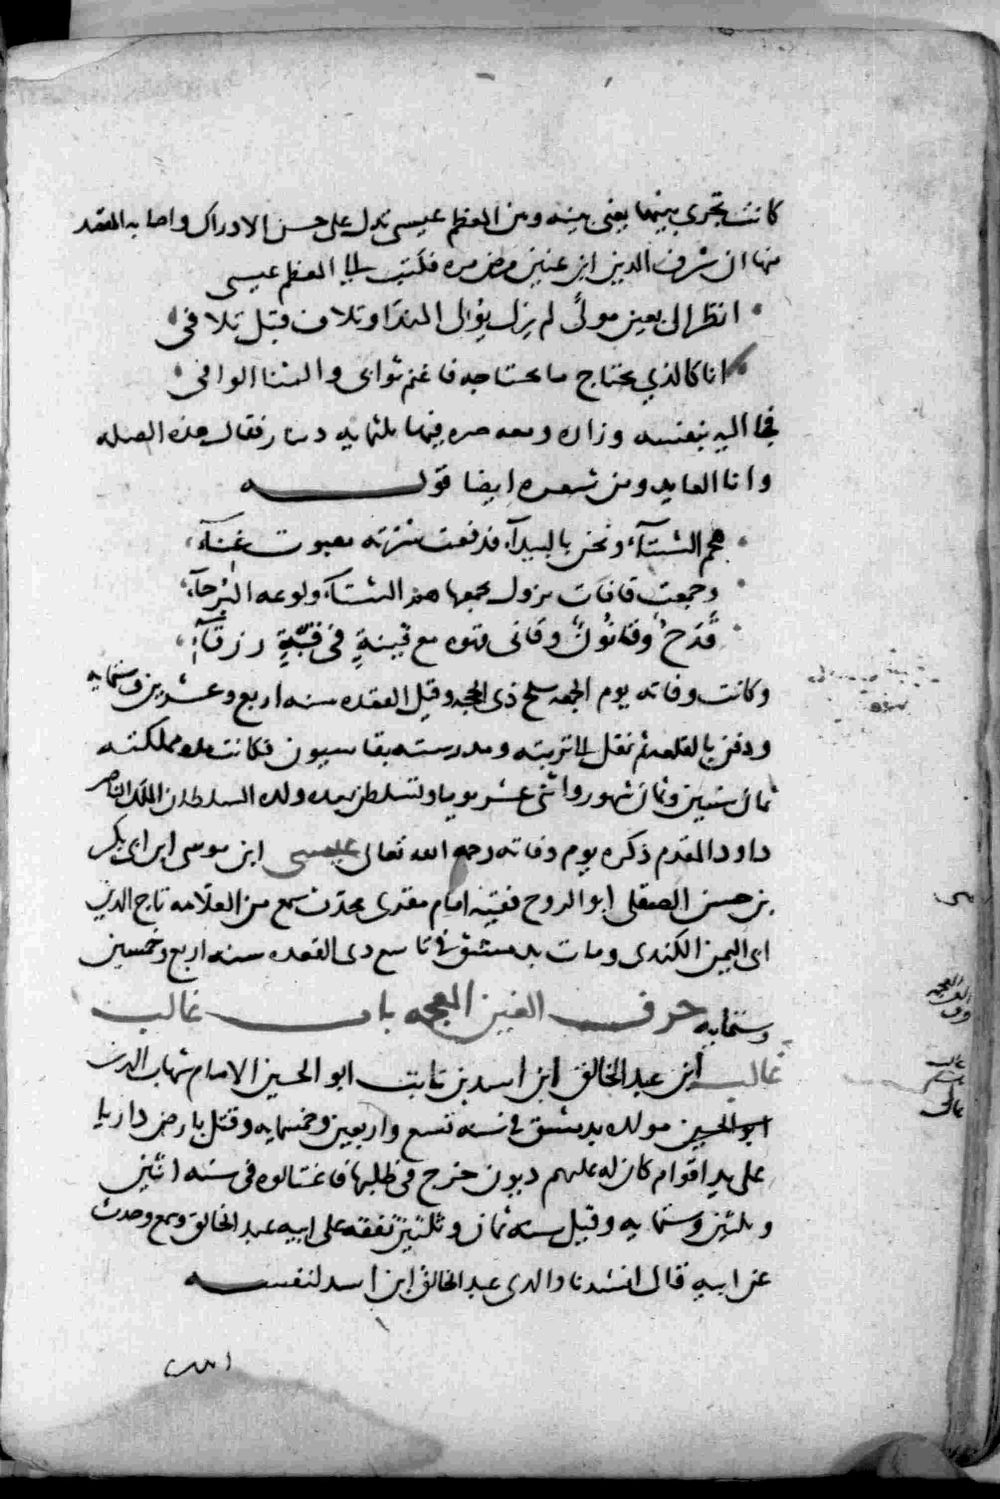 كانت تجرى بينهما يعنى بينه وبين المعظم عيسى تدل على حسن الادراك واصابه المقصد
منها ان شرف الدين ابن عنين مرض مره فكتب الى المعظم عيسى
انظر الى بعين مولى لم يزل يولى الندا وتلاف قبل تلافى
انا كالذي يحتاج ما يحتاجه فاغنم ثوابى والثنا الوافى
فجا اليه بنفسه وزاره ومعه صره فيها ثلثمايه دينار فقال هذه الصله
وانا العايد ومن شعره ايضا قوله
هجم الشتآء ونحن بالبيدآء فدفعت شرته بصوت غنآء
وجمعت قافات يزول بجمعها هم الشتآء ولوعه البرحآء
قدح وقانون وقانى قهوه مع قينةٍ فى قبّةٍ زرقآء
وكانت وفاته يوم الجمعه سلخ ذى الحجه وقيل القعده سنه اربع وعشرين وستمايه
ودفن بالقلعه ثم نقل الى تربته ومدرسته بقاسيون فكانت مده مملكته
ثمان سنين وثمان شهور واثنى عشر يوما وتسلطن بعده ولده السلطان الملك الناصر
داود المقدم ذكره يوم وفاته رحمه الله تعالى عيسى ابن موسى ابن ابى بكر
بن حسن الصقلى ابو الروح فقيه امام مقرى محدث سمع من العلامه تاج الدين
ابى اليمن الكندى ومات بدمشق فى تاسع ذى القعده سنه اربع وخمسين
وستمايه حرف الغين المعجمه باب غالب
غالب ابن عبد الخالق ابن اسد بن ثابت ابو الحسين الامام شهاب الدين
ابو الحسين مولده بدمشق فى سنه تسع واربعين وخمسمايه وقتل بارض داريا
على يد اقوام كان له عليهم ديون خرج فى طلبها فاغتالوه فى سنه اثنين
وثلثين وستمايه وقيل سنه ثمان وثلثين تفقه على ابيه عبد الخالق وسمع وحدث
عن ابيه قال انشدنا والدى عبد الخالق ابن اسد لنفسه